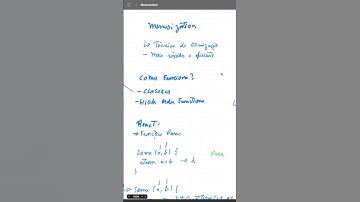 Memoization
↳ Técnica de otimização
– Mais rápido e eficiente
Como Funciona?
– Closures
– High Order Functions
React:
→ Funções Puras
Soma (a, b) {
return a+b → d
}
Para
↳ Soma (a, b) {